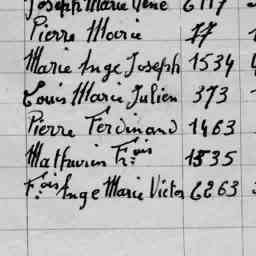 Joseph Marie René 6117
Pierre Marie 77
Marie Ange Joseph 1534
Louis Marie Julien 373
Pierre Ferdinand 1463
Mathurin F.ois 1535
F.ois Ange Marie Victor 6263